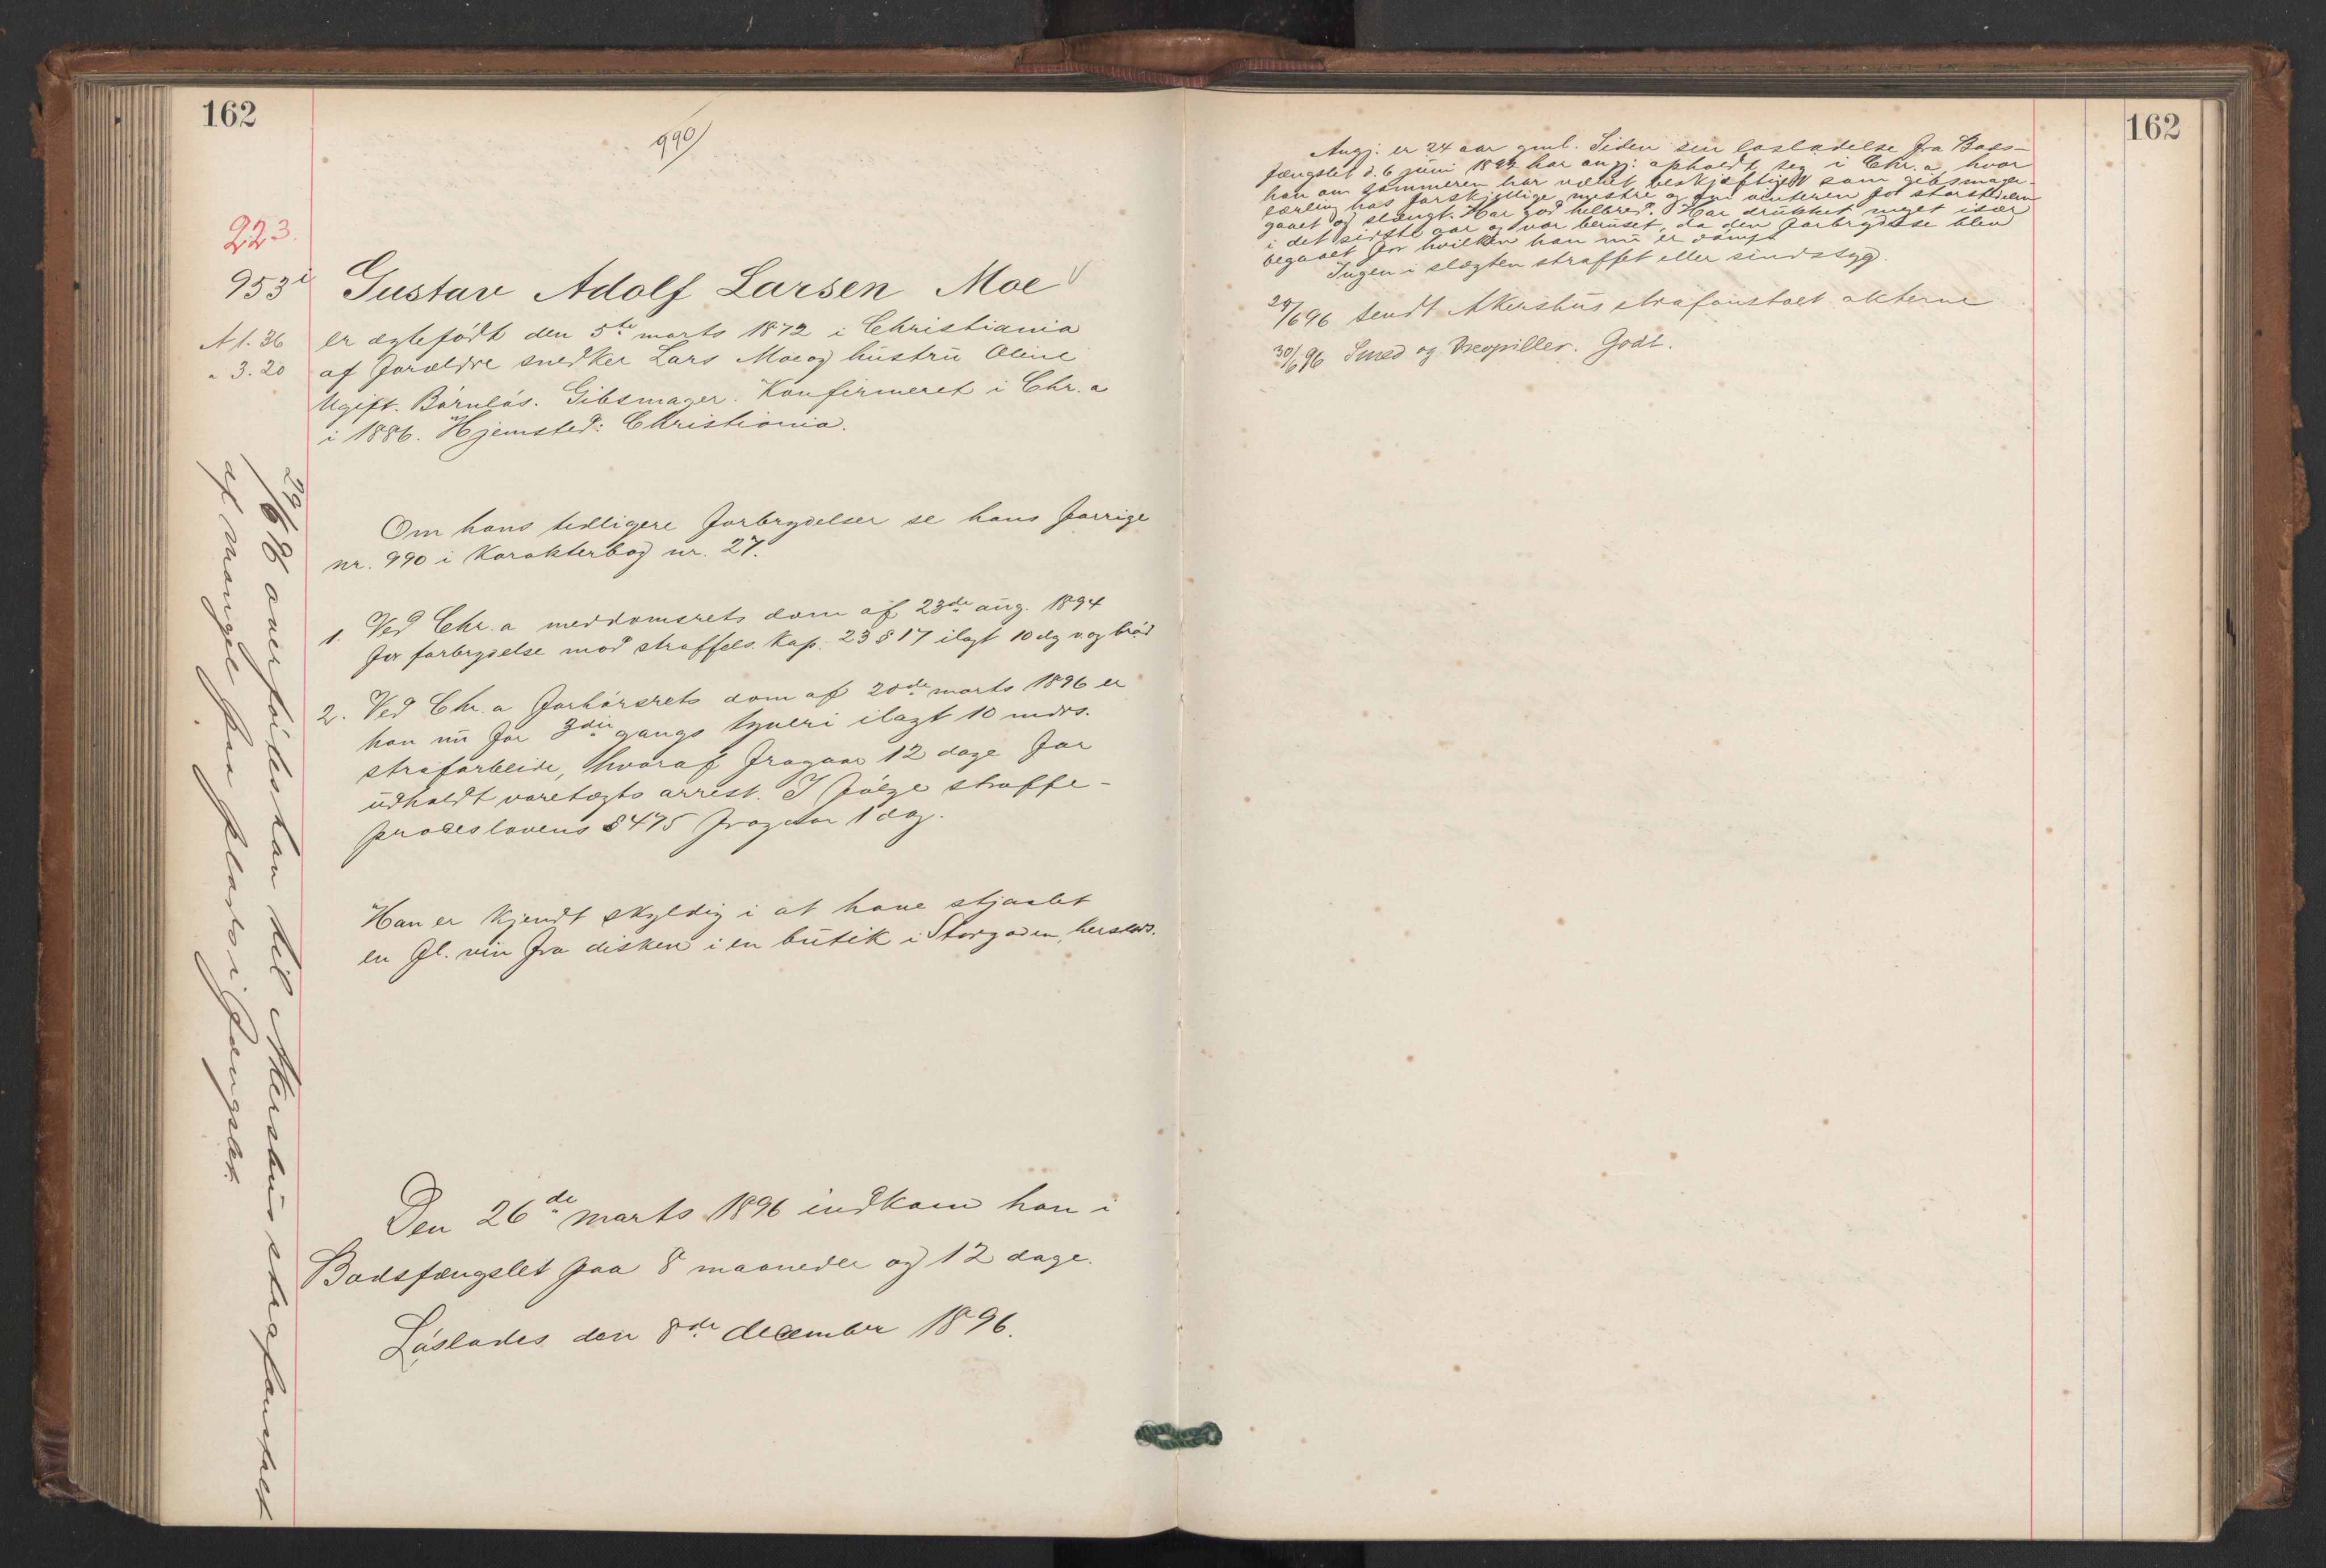 162
990
223.
953
Gustav Adolf Larsen Moe
A 1. 36
" 3. 20
er ægtefødt den 5te marts 1872 i Christiania
af forældre snedker Lars Moe og hustru Oline
Ugift. Børnløs. Gibsmager. Konfirmeret i Chr.a
i 1886. Hjemsted: Christiania.
Om hans tidligere forbrydelser se hans forrige
nr. 990 i Karakterbog nr. 27.
1. Ved Chr.a meddomsrets dom af 23de aug. 1894
for forbrydelse mod straffels. Kap. 23 § 17 ilagt 10 dg v og brød
2. Ved Chr.a Forhørsrets dom af 20de marts 1896 er
han nu for 3die gangs tyveri ilagt 10 mdrs.
strafarbeide, hvoraf fragaar 12 dage for
udholdt varetægts arrest. I følge straffe-
proceslovens § 475 fragaar 1 dag.
Han er kjendt skyldig i at have stjaalet
en fl. vin fra disken i en butik i Storgaden, herstds.
Den 26de marts 1896 indkom han i
Bodsfængslet paa 8 maaneder og 12 dage.
Løslades den 8de december 1896.
29/6 96 overførtes han til Akershus strafanstalt
af mangel paa plads i fængslet.
162
Angj. er 24 aar gml. Siden sin løsladelse fra Bods-
fængslet d. 6 juni 1892 har angj. opholdt seg i Chr.a hvor
han om sommeren har været beskjæftiget som gibsmager-
lærling hos forskjellige mestre og om vinteren for størstedelen
gaaet og slængt. Har god helbred. Har drukket meget især
i det sidste aar og var beruset, da den forbrydelse blev
begaaet for hvilken han nu er dømt.
Ingen i slægten straffet eller sindssyg.
29/6 96 sendt Akershus strafanstalt akterne
30/6 96 Smed og Godt.